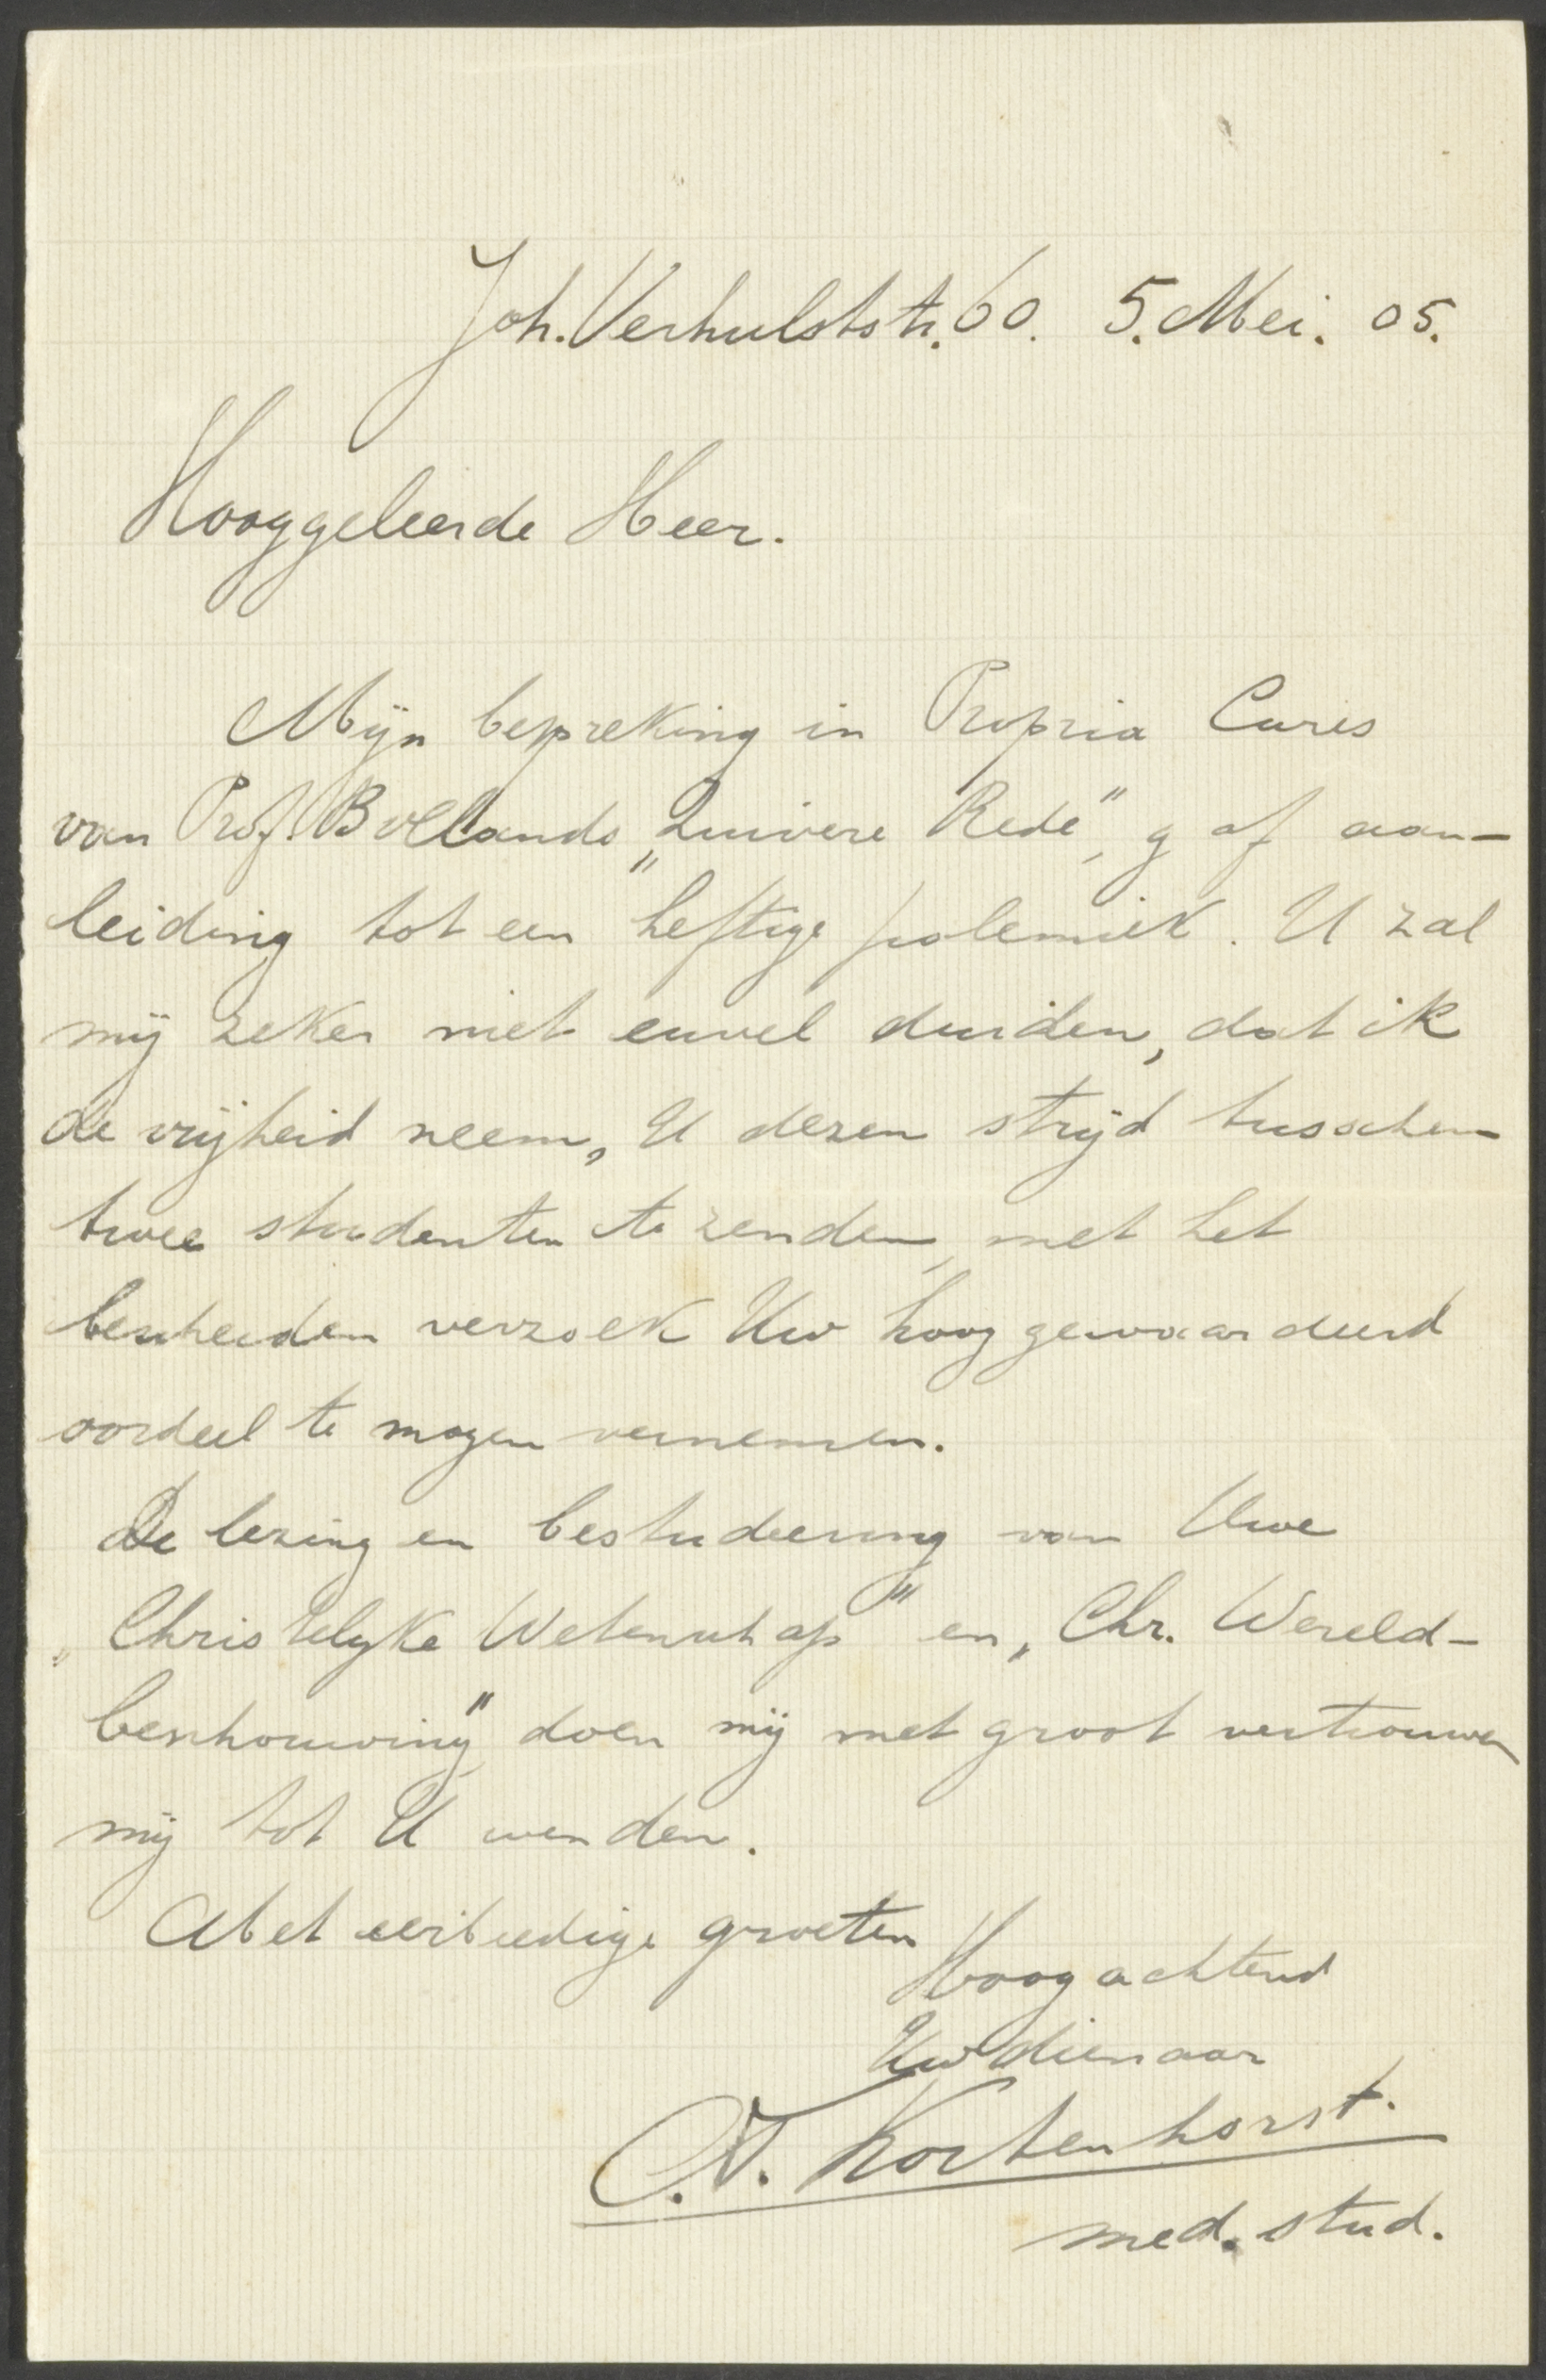 Joh. Verhulststr. 60. 5. Mei. 05.
Hooggeleerde Heer.
Mijn bespreking in Propria Cures
van Prof. Bollands „Zuivere Rede", gaf aan-
leiding tot een heftige polemiek. U zal
mij zeker niet euvel duiden, dat ik
de vrijheid neem, U dezen strijd tusschen
twee studenten te zenden, met het
bescheiden verzoek Uw hooggewaardeerd
oordeel te mogen vernemen.
De lezing en bestudeering van Uwe
„Christelyke Wetenschap" en „Chr. Wereld-
beschouwing" doen mij met groot vertrouwen
mij tot U wenden.
Met eerbiedige groeten
Hoogachtend
Uw dienaar
C. T. Kortenhorst.
med. stud.